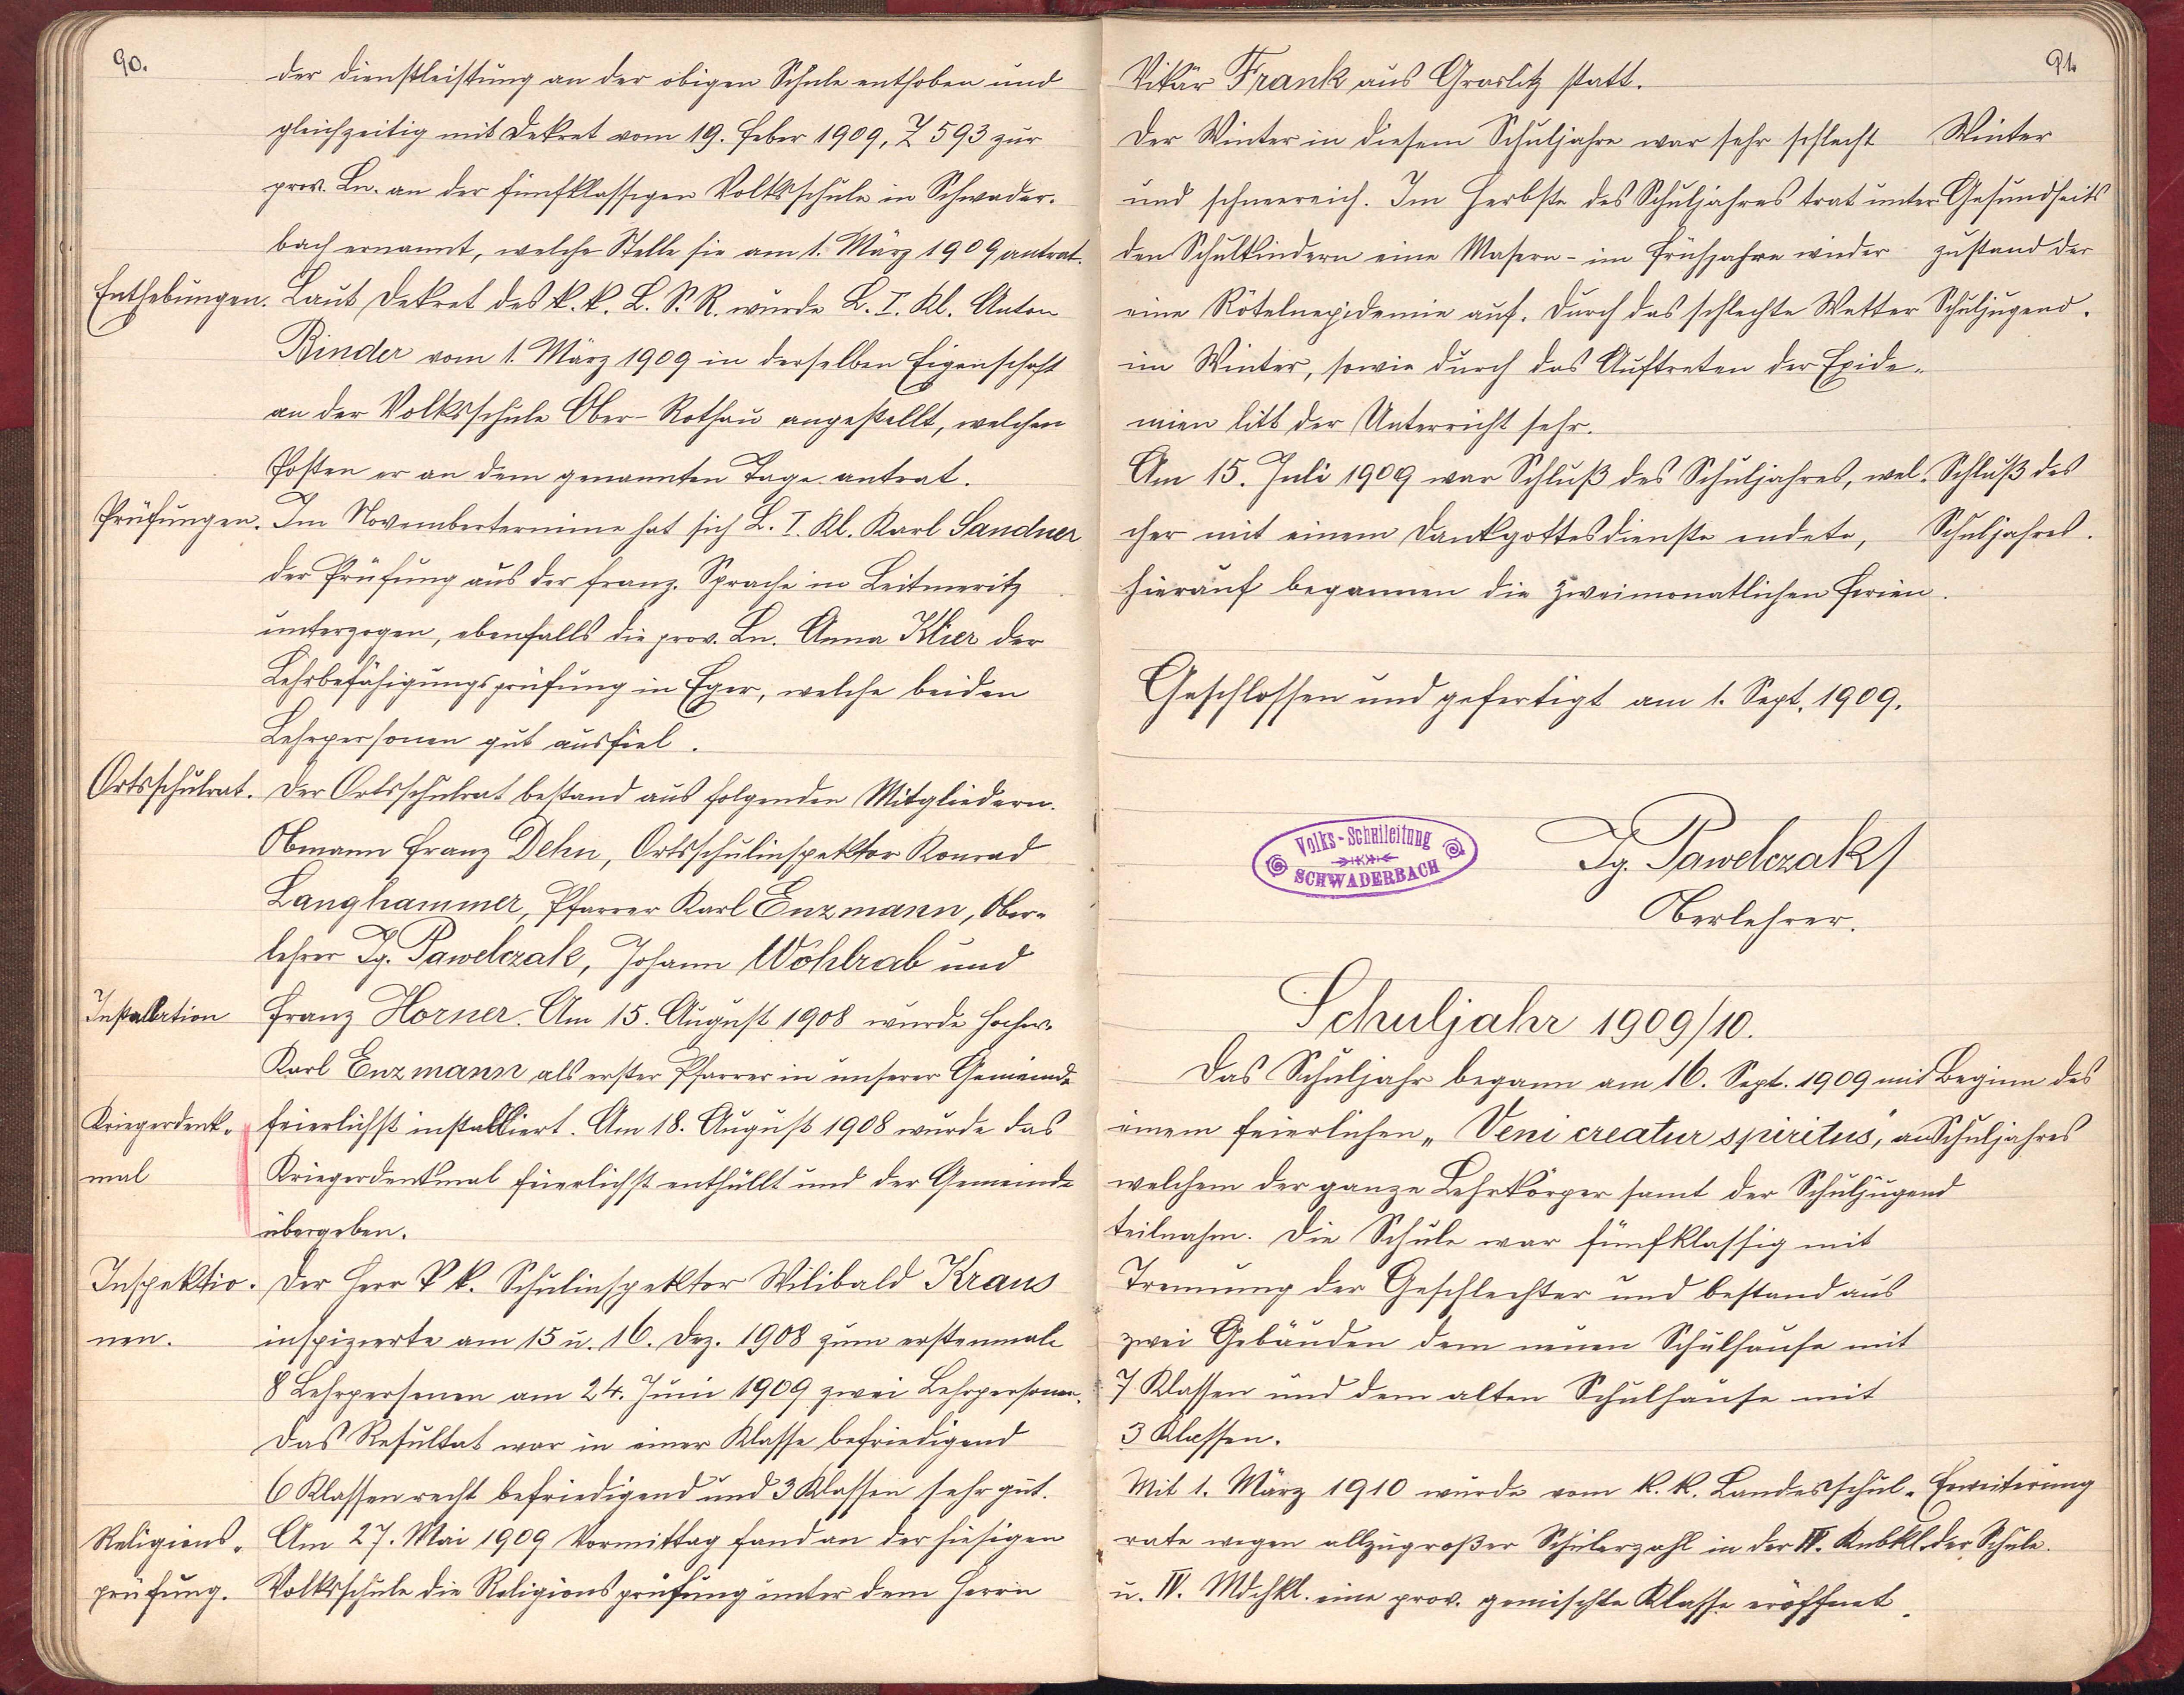 90.
der Dienstleistung an der obigen Schule enthoben und
gleichzeitig mit Dekret vom 19. Feber 1909, Z 593 zur
prov. Ln. an der fünfklassigen Volksschule in Schwader-
bach ernannt, welche Stelle sie am 1. März 1909 antrat.
Enthebungen. Laut Dekret des k. k. L. S. R. wurde L. I. Kl. Anton
Binder vom 1. März 1909 in derselben Eigenschaft
an der Volksschule Ober-Rothau angestellt, welchen
Posten er an dem genannten Tage antrat.
Prüfungen. Im Novembertermine hat sich L. I. Kl. Karl Sandner
der Prüfung aus der franz. Sprache in Leitmeritz
unterzogen, ebenfalls die prov. Ln. Anna Klier der
Lehrbefähigungsprüfung in Eger, welche beiden
Lehrpersonen gut ausfiel.
Ortsschulrat. Der Ortsschulrat bestand aus folgenden Mitgliedern.
Obmann Franz Dehn, Ortsschulinspektor Konrad
Langhammer, Pfarrer Karl Enzmann, Ober-
lehrer Ig. Pawelczak, Johann Wohlrab und
Installation Franz Horner. Am 15. August 1908 wurde Hochw.
Karl Enzmann als erster Pfarrer in unserer Gemeinde
Kriegerdenk- feierlichst installiert. Am 18. August 1908 wurde das
mal Kriegerdenkmal feierlichst enthüllt und der Gemeinde
übergeben.
Inspektio- Der Herr k k. Schulinspektor Wilibald Kraus
nen. inspizierte am 15 u. 16. Dez. 1908 zum erstenmale
8 Lehrpersonen am 24. Juni 1909 zwei Lehrpersonen.
Das Resultat war in einer Klasse befriedigend
6 Klassen recht befriedigend und 3 Klassen sehr gut.
Religions- Am 27. Mai 1909 Vormittag fand an der hiesigen
prüfung. Volksschule die Religionsprüfung unter dem Herrn
91.
Vikär Frank aus Graslitz statt.
Der Winter in diesem Schuljahre war sehr schlecht Winter
und schneereich. Im Herbste des Schuljahres trat unter Gesundheits
den Schulkindern eine Masern- im Frühjahre wieder zustand der
eine Rötelnepidemie auf. Durch das schlechte Wetter Schuljugend.
im Winter, sowie durch das Auftreten der Epide-
mien litt der Unterricht sehr.
Am 15. Juli 1909 war Schluß des Schuljahres, wel- Schluß des
cher mit einem Dankgottesdienste endete, Schuljahres.
hierauf begannen die zweimonatlichen Ferien.
Geschlossen und gefertigt am 1. Sept. 1909.
Volks-Schulleitung
SCHWADERBACH
Ig. Pawelczak
Oberlehrer.
Schuljahr 1909/10.
Das Schuljahr begann am 16. Sept. 1909 mit Beginn des
einem feierlichen „Veni creatur spiritus", an Schuljahres
welchem der ganze Lehrkörper samt der Schuljugend
teilnahm. Die Schule war fünfklassig mit
Trennung der Geschlechter und bestand aus
zwei Gebäuden dem neuen Schulhause mit
7 Klassen und dem alten Schulhause mit
3 Klassen.
Mit 1. März 1910 wurde vom k. k. Landesschul- Erweiterung
rate wegen allzugroßer Schülerzahl in der IV. Knbkl. der Schule.
u. IV. Mdchkl. eine prov. gemischte Klasse eröffnet.